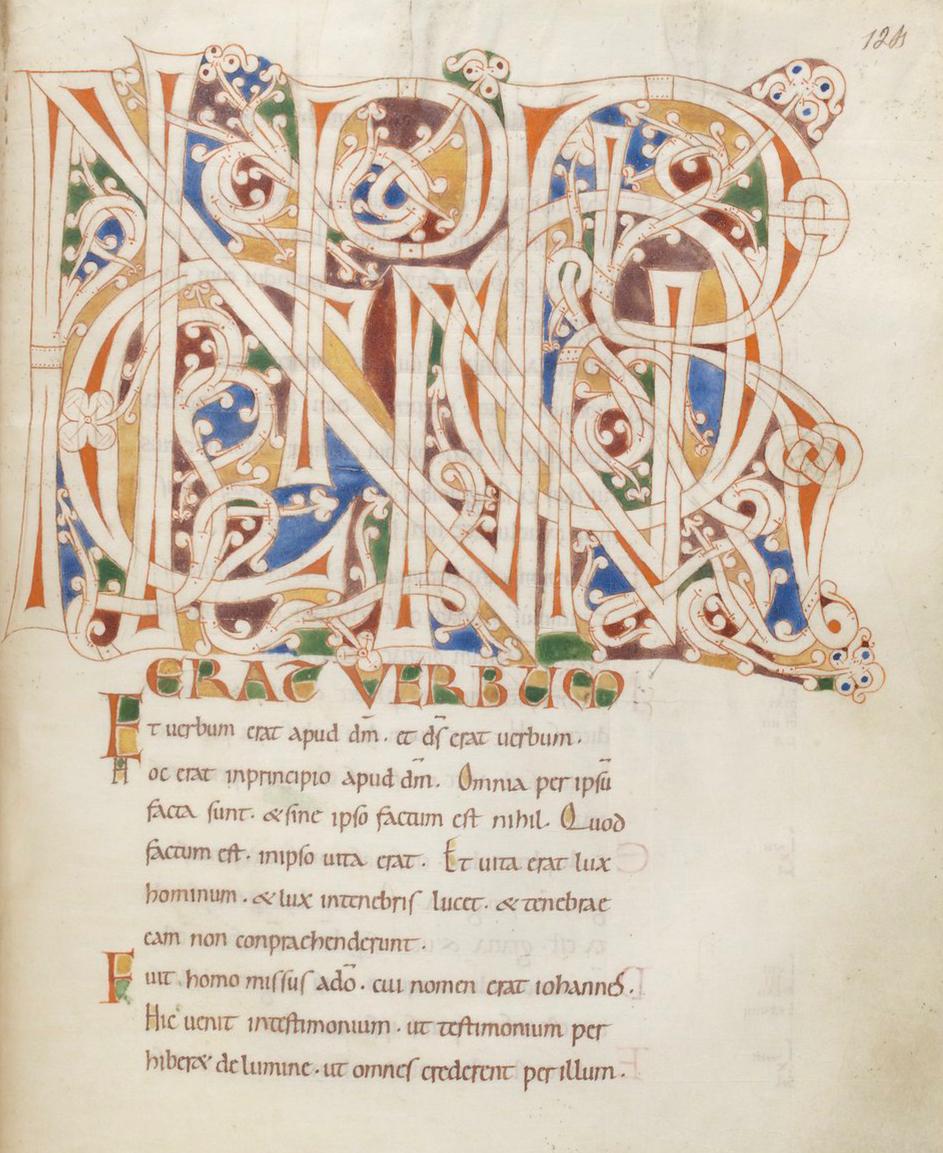 ERAT VERBUM
Et verbum erat apud dm̄. et ds̄ erat verbum.
Hoc erat inprincipio apud dm̄. Omnia per ipsū
facta sunt. & sine ipso factum est nihil. Quod
factum est. inipso uita erat. Et uita erat lux
hominum. & lux intenebris lucet. & tenebrae
eam non conpraehenderunt.
Fuit homo missus adō. cui nomen erat iohannes.
Hic uenit intestimonium. ut testimonium per
hiber& de lumine. ut omnes crederent per illum.